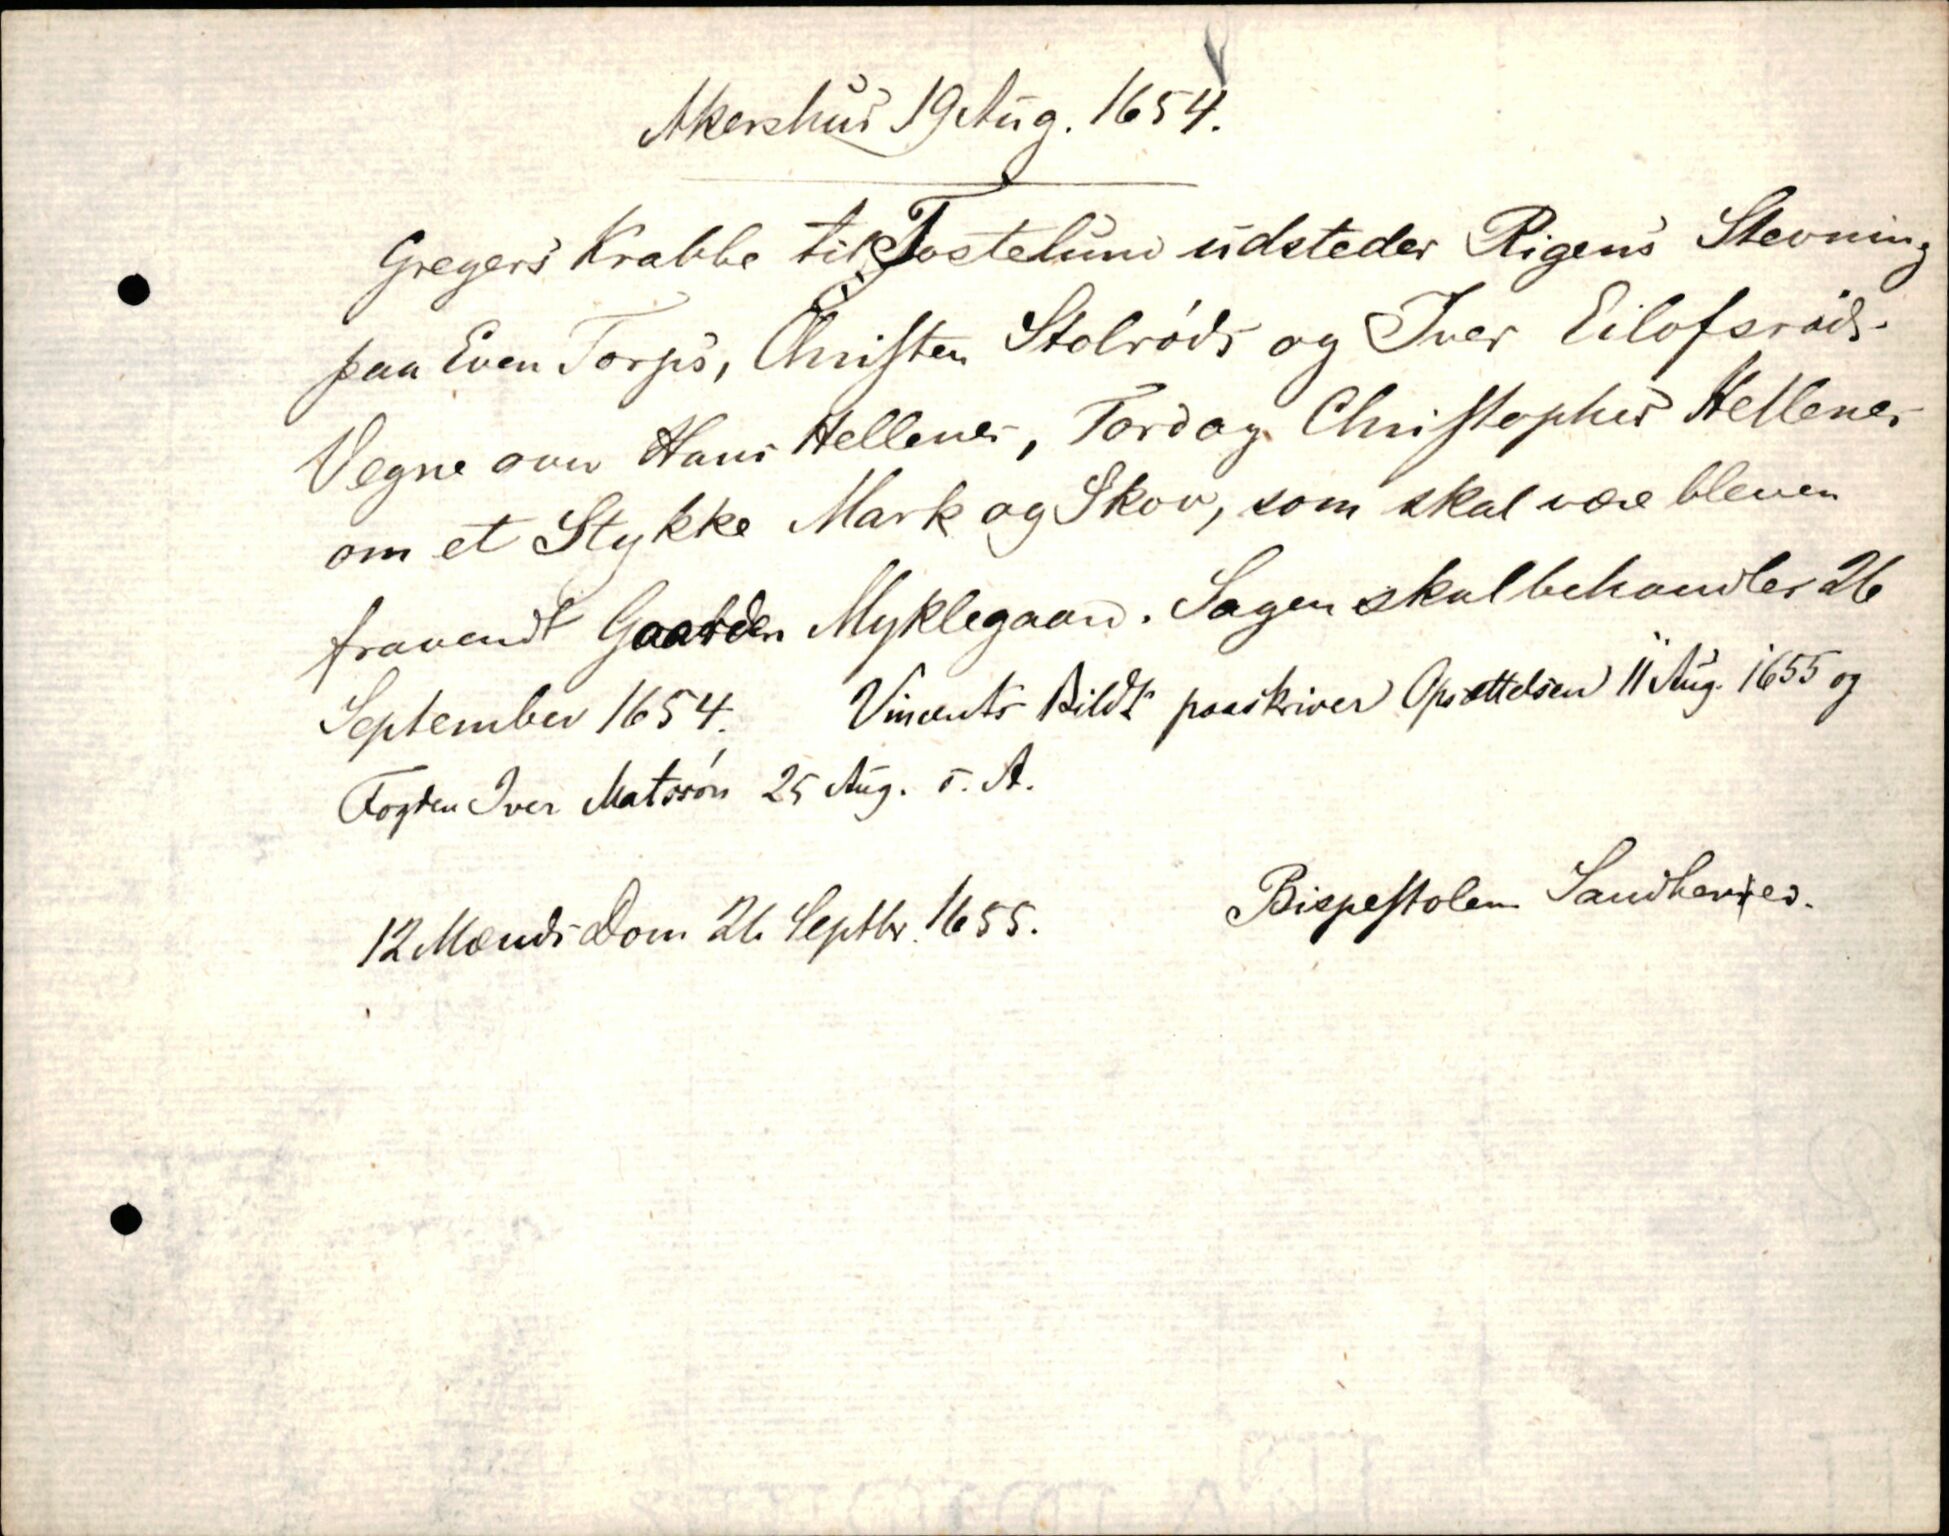 Akershus 19 Aug. 1654.
Gregers Krabbe til Tostelund udsteder Rigens Stevning
paa Even Torps, Christen Stolrøds og Iver Eilofsrøds
Vegne over Hans Hellenes, Tord og Christophers Hellenes
om et Stykke Mark og Skov, som skal være bleven
fravendt Gaarden Myklegaard. Sagen skal behandles 26
September 1654. Vincents Bildt paaskriver Opsættelsen 11 Aug. 1655 og
Fogden Iver Matssøn 25 Aug. s. A.
12 Mænds Dom 26 Septbr. 1655.
Bispestolen Sandherres.